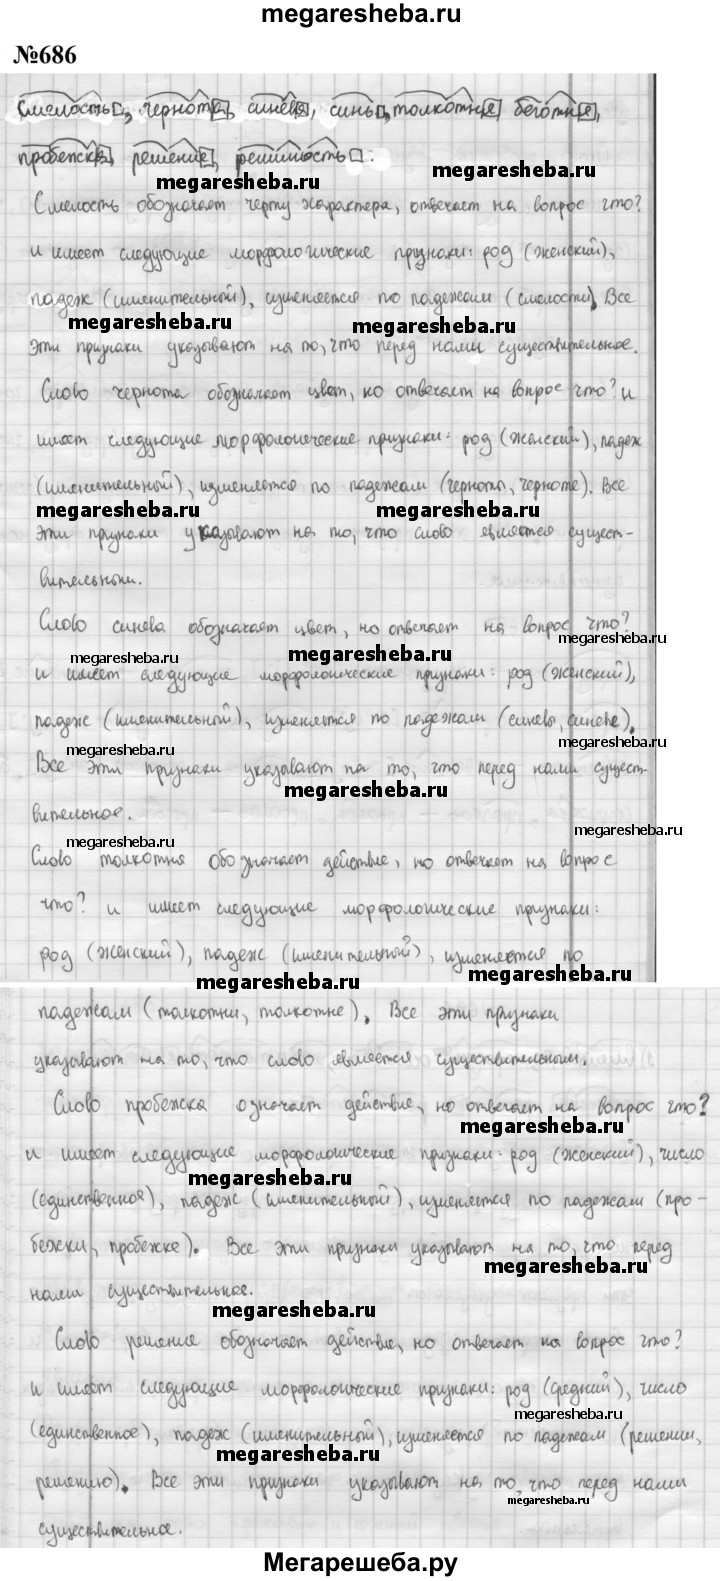 megaresheba.ru
№686
Смелость, чернота, синева, синь, толкотня, беготня,
пробежка, решение, решимость.
megaresheba.ru
megaresheba.ru
Смелость обозначает черту характера, отвечает на вопрос что?
и имеет следующие морфологические признаки: род (женский),
падеж (именительный), изменяется по падежам (смелости). Все
megaresheba.ru
megaresheba.ru
эти признаки указывают на то, что перед нами существительное.
Слово чернота обозначает цвет, но отвечает на вопрос что? и
имеет следующие морфологические признаки: род (женский), падеж
(именительный), изменяется по падежам (черноты, черноте). Все
megaresheba.ru
megaresheba.ru
эти признаки указывают на то, что слово является сущест-
вительным.
Слово синева обозначает цвет, но отвечает на вопрос что?
megaresheba.ru
megaresheba.ru
megaresheba.ru
и имеет следующие морфологические признаки: род (женский),
падеж (именительный), изменяется по падежам (синевы, синеве).
megaresheba.ru
megaresheba.ru
Все эти признаки указывают на то, что перед нами сущест-
megaresheba.ru
вительное.
megaresheba.ru
megaresheba.ru
Слово толкотня обозначает действие, но отвечает на вопрос
что? и имеет следующие морфологические признаки:
род (женский), падеж (именительный), изменяется по
megaresheba.ru
megaresheba.ru
падежам (толкотни, толкотне). Все эти признаки
указывают на то, что слово является существительным.
Слово пробежка означает действие, но отвечает на вопрос что?
megaresheba.ru
и имеет следующие морфологические признаки: род (женский), число
megaresheba.ru
(единственное), падеж (именительный), изменяется по падежам (про-
бежки, пробежке). Все эти признаки указывают на то, что перед
megaresheba.ru
нами существительное.
megaresheba.ru
Слово решение обозначает действие, но отвечает на вопрос что?
и имеет следующие морфологические признаки: род (средний), число
megaresheba.ru
(единственное), падеж (именительный), изменяется по падежам (решении,
megaresheba.ru
решению). Все эти признаки указывают на то, что перед нами
megaresheba.ru
существительное.
Мегарешеба.ру